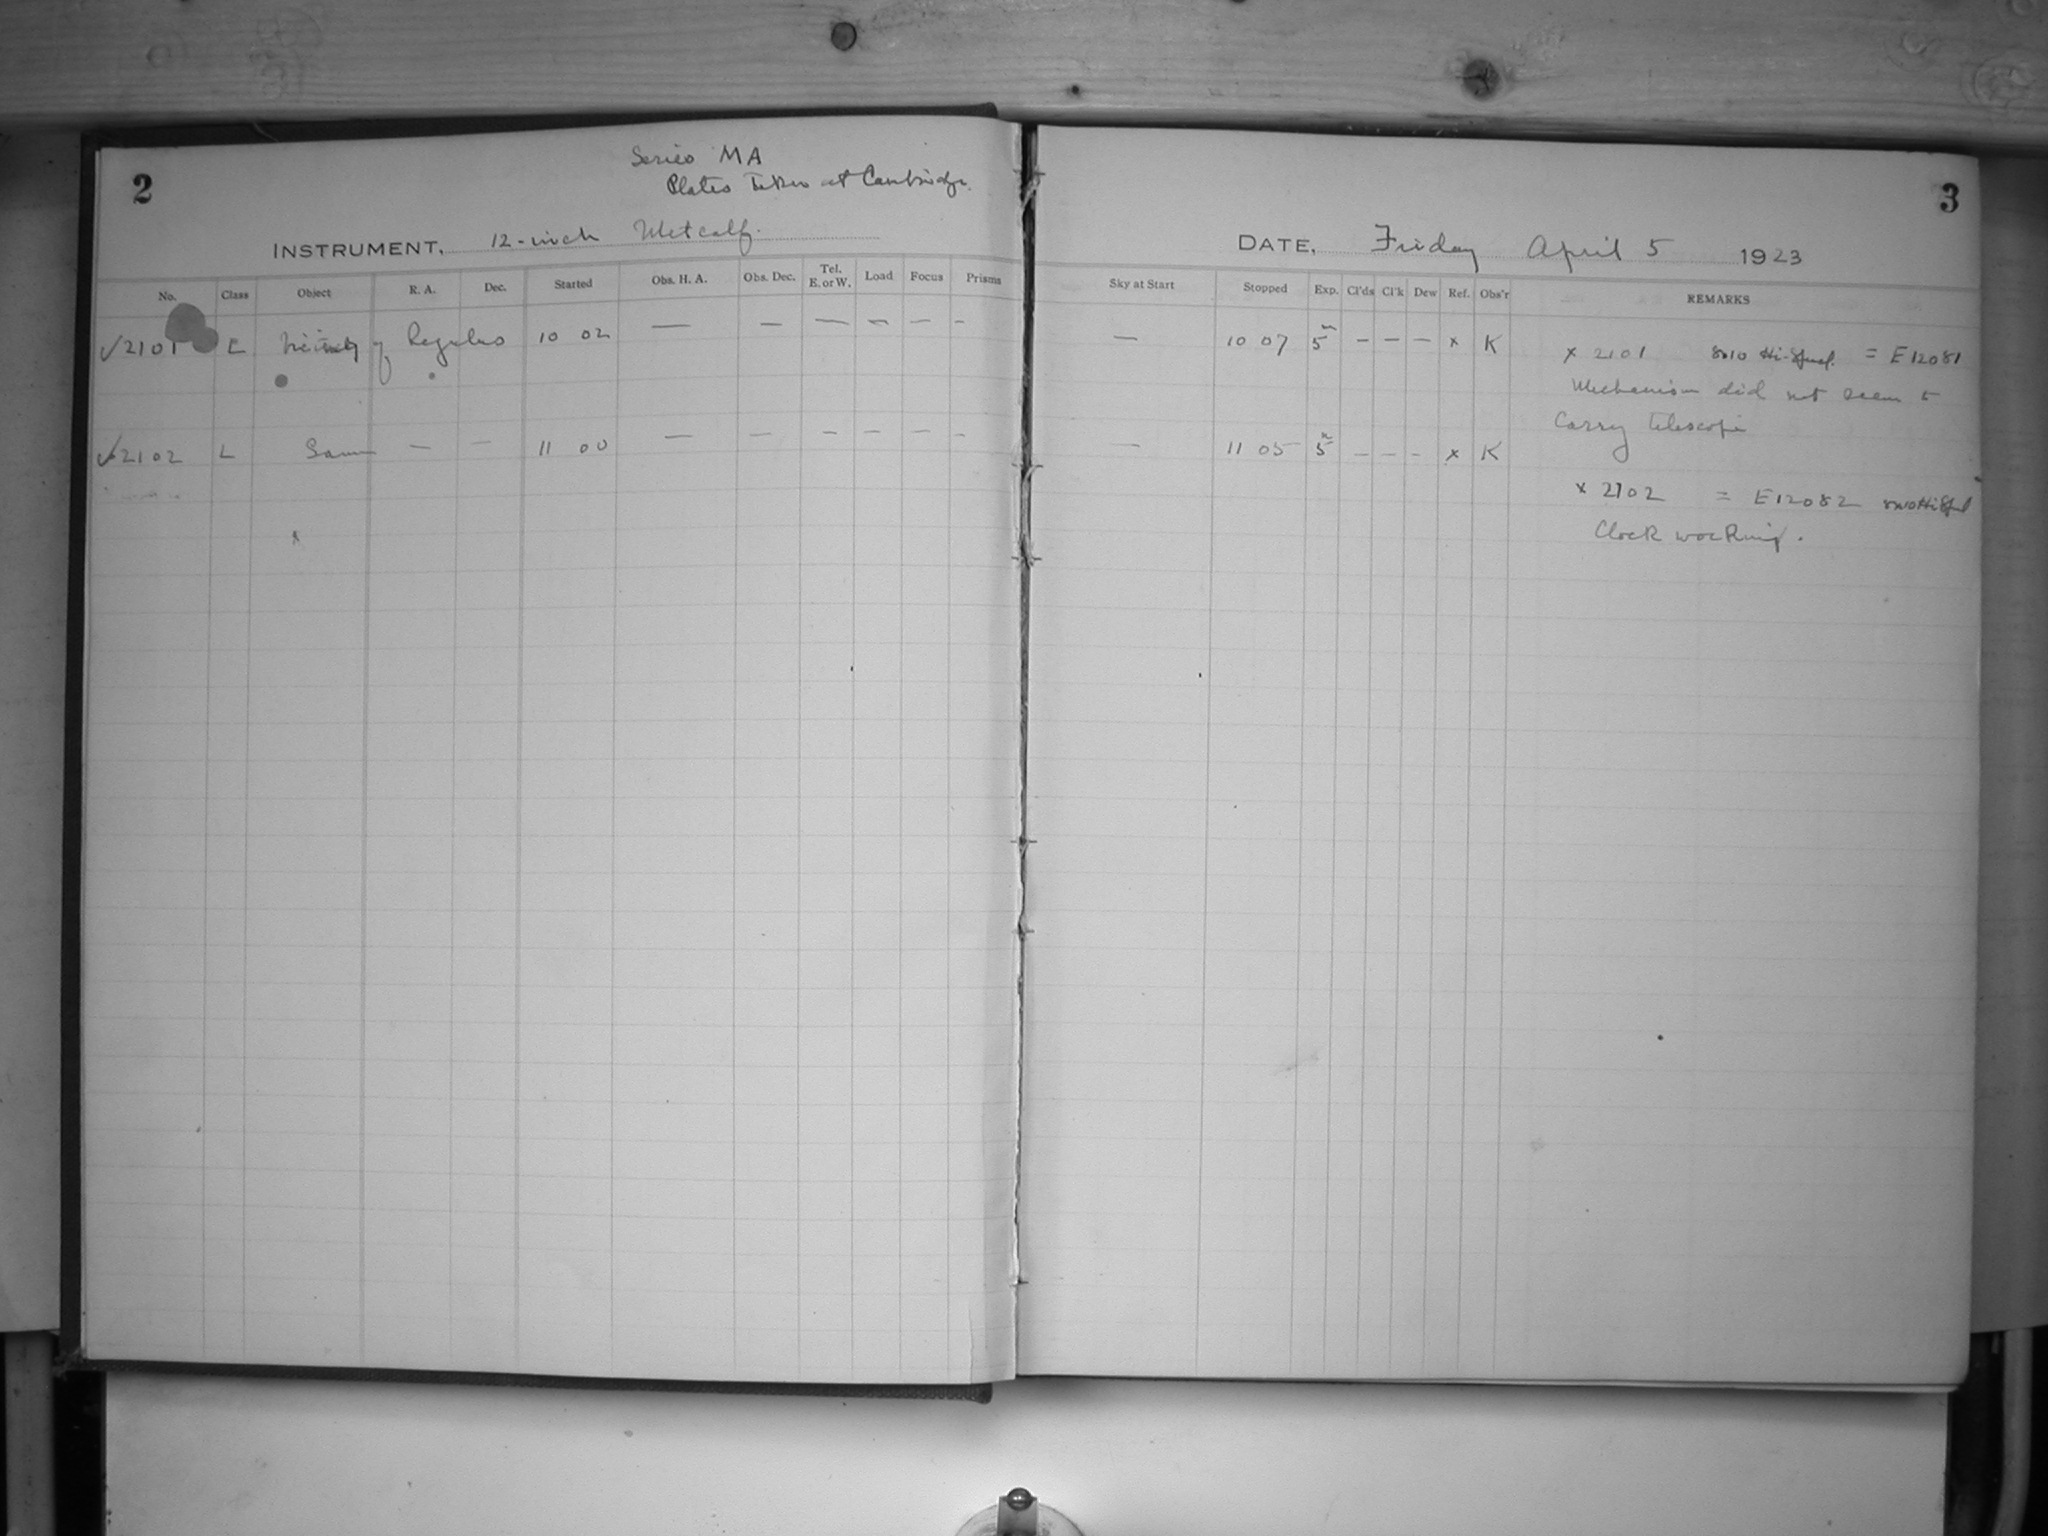 Series MA
2
Plates Taken at Cambridge.
INSTRUMENT, 12-inch Metcalf.
No. Class Object R. A. Dec. Started Obs. H. A. Obs. Dec. Tel. E. or W. Load Focus Prisms
✓2101 L Vicinity of Regulus 10 02 — — — — — —
✓2102 L Same — — 11 00 — — — — — —
x
3
DATE, Friday April 5 1923
Sky at Start Stopped Exp. Cl'ds Cl'k Dew Ref. Obs'r REMARKS
— 10 07 5m — — — x K x 2101 8x10 Hi-Speed. = E12081
Mechanism did not seem to
Carry telescope
— 11 05 5m — — — x K
x 2102 = E12082 8x10 Hi Spd
Clock working.